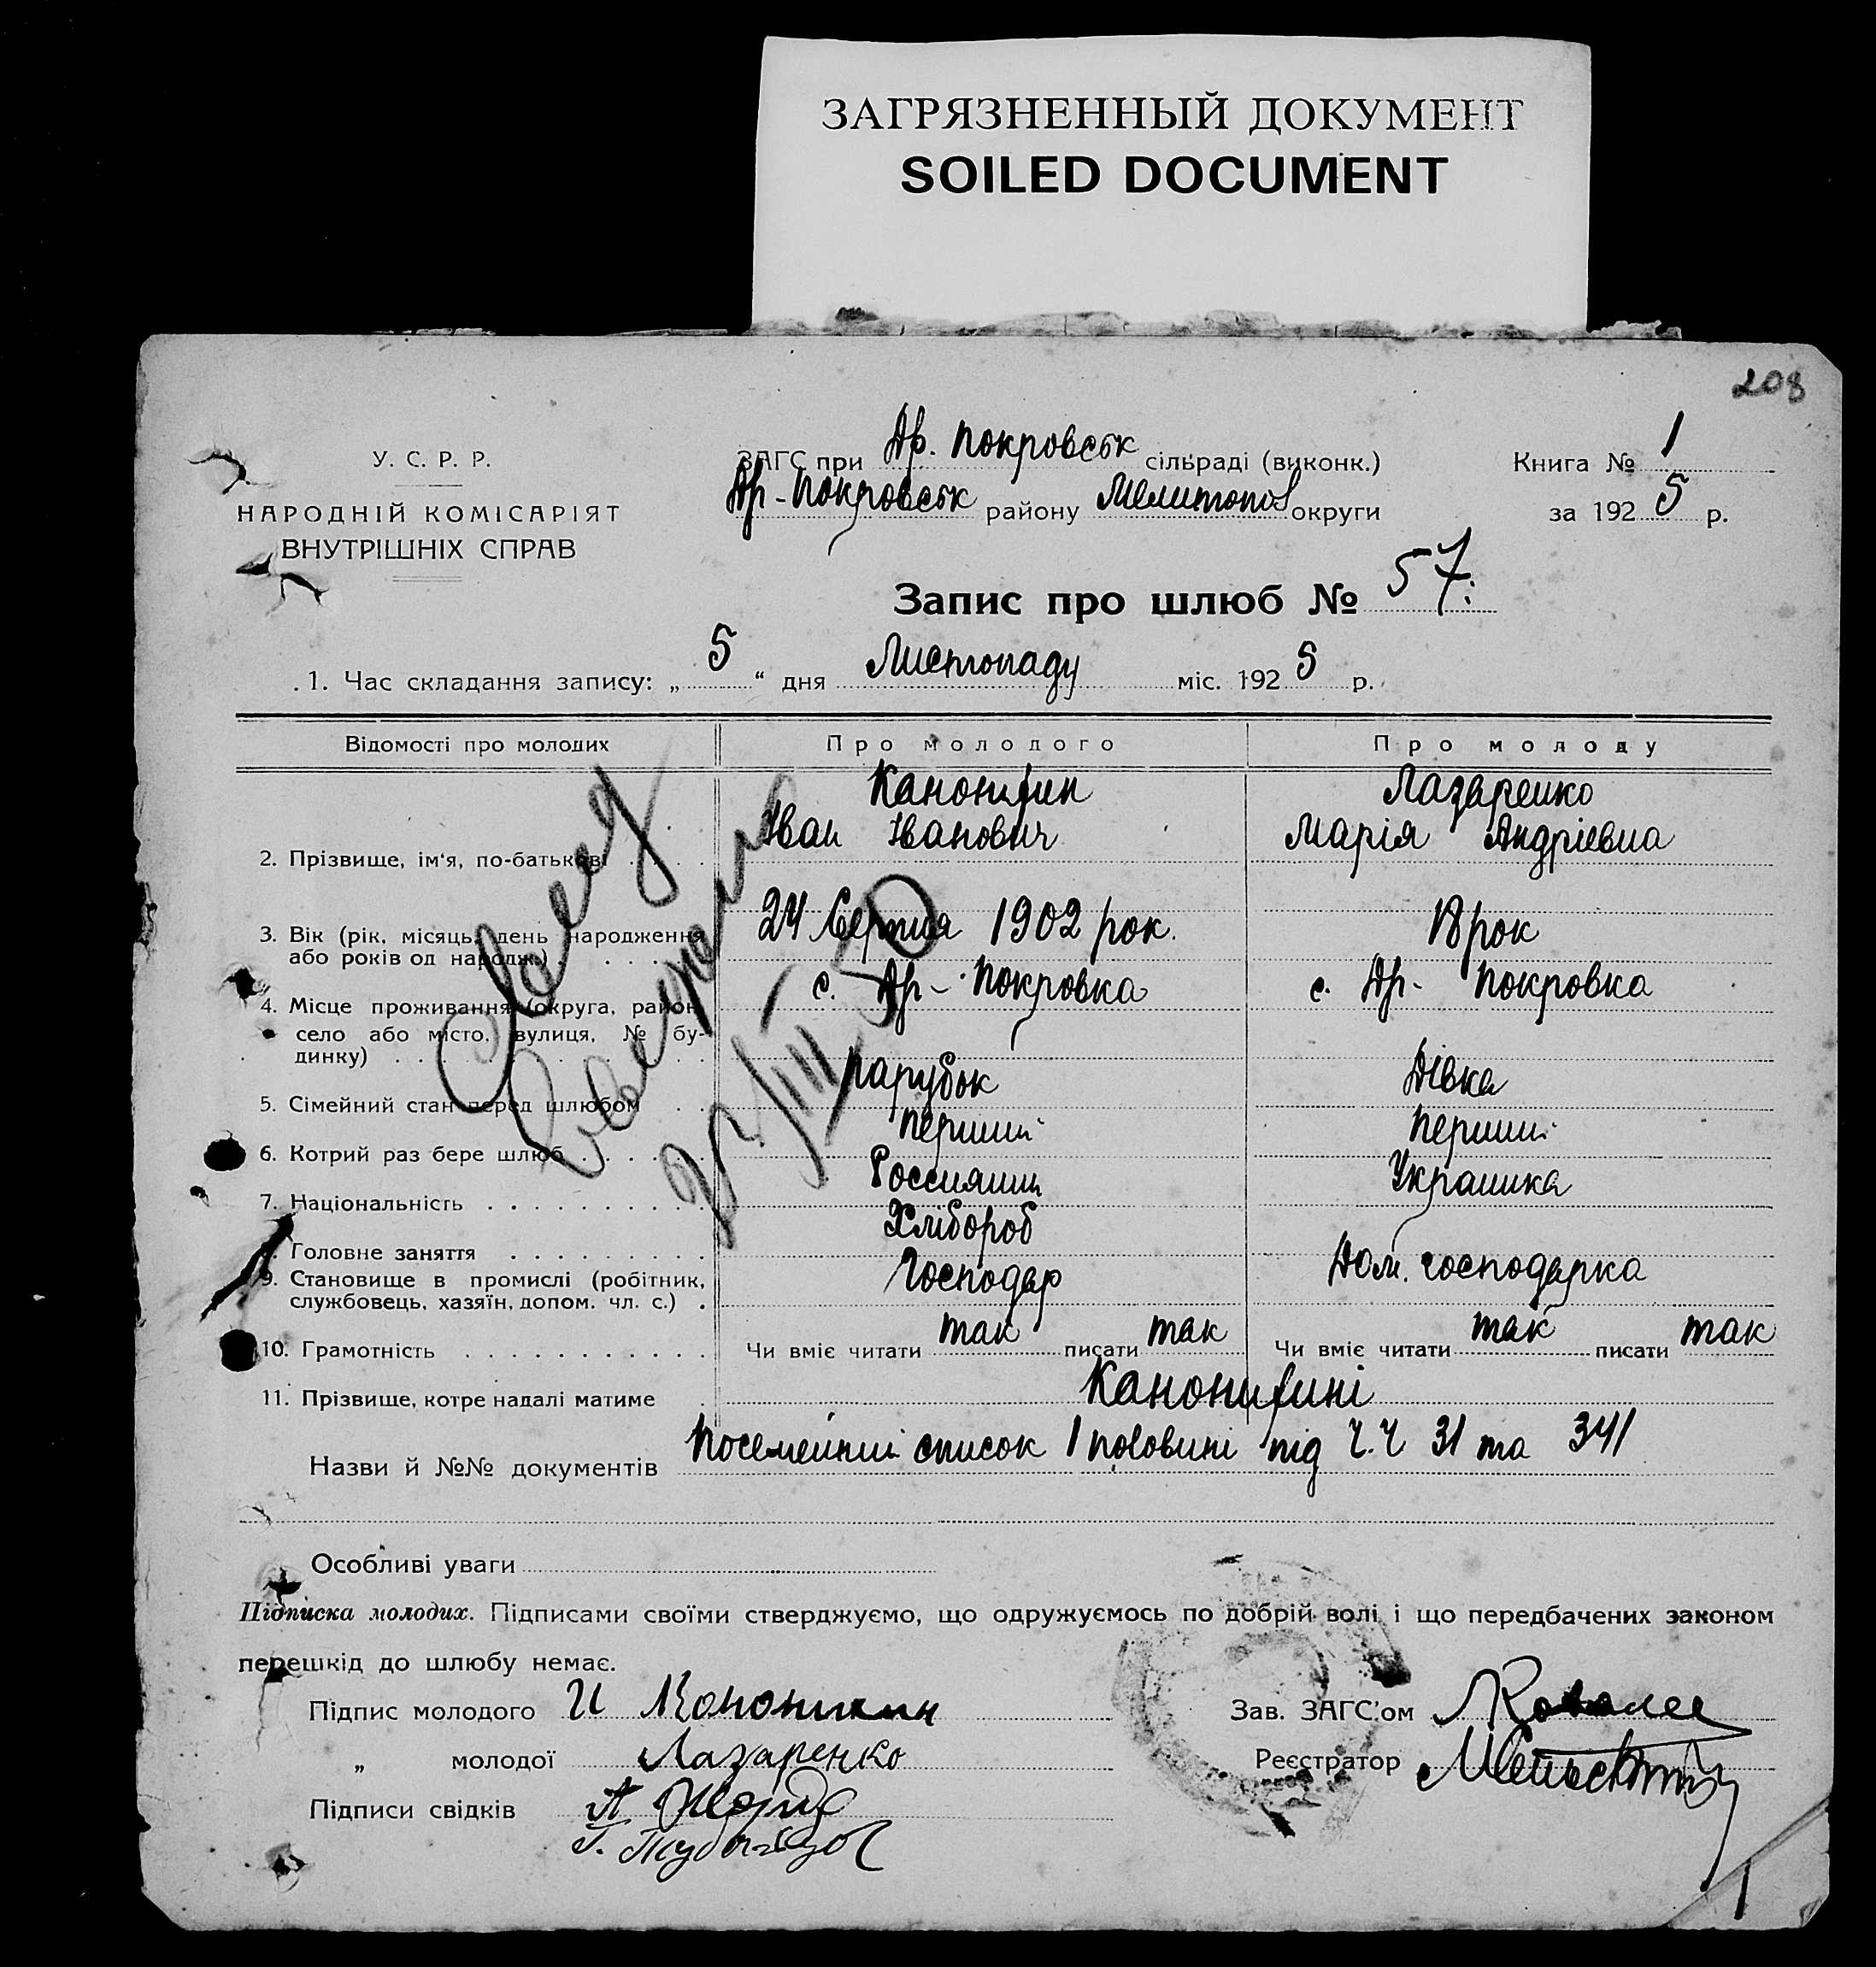 ЗАГРЯЗНЕННЫЙ ДОКУМЕНТ
SOILED DOCUMENT
208
У. С. Р. Р.
НАРОДНІЙ КОМІСАРІЯТ
ВНУТРІШНІХ СПРАВ
ЗАГС при Др. Покровськ сільраді (виконк.)
Др-Покровськ району Мелитопол округи
Книга № 1
за 1925 р.
Запис про шлюб № 57.
1. Час складання запису: „5“ дня Листопаду міс. 1925 р.
Відомості про молодих Про молодого Про молоду
Канонихин Лазаренко
2. Прізвище, ім'я, по-батькові Іван Іванович Марія Андріевна
3. Вік (рік, місяць, день народження 24 Серпня 1902 рок. 18 рок
або років од народж.)
4. Місце проживання (округа, район, с. Др- Покровка с. Др- Покровка
село або місто, вулиця, № бу-
динку)
5. Сімейний стан перед шлюбом Парубок Дівка
6. Котрий раз бере шлюб Перший Перший
7. Національність Россиянин Украинка
8. Головне заняття Хлібороб
9. Становище в промислі (робітник, Господар Дом. господарка
службовець, хазяїн, допом. чл. с.)
10. Грамотність Чи вміє читати так писати так Чи вміє читати так писати так
11. Прізвище, котре надалі матиме Канонихині
Назви й №№ документів Посемейний список 1 половині під Ч.Ч 31 та 341
Особливі уваги
Підписка молодих. Підписами своїми стверджуємо, що одружуємось по добрій волі і що передбачених законом
перешкід до шлюбу немає.
Підпис молодого И Кононихин
„ молодої Лазаренко
Підписи свідків
Зав. ЗАГС'ом
Реєстратор